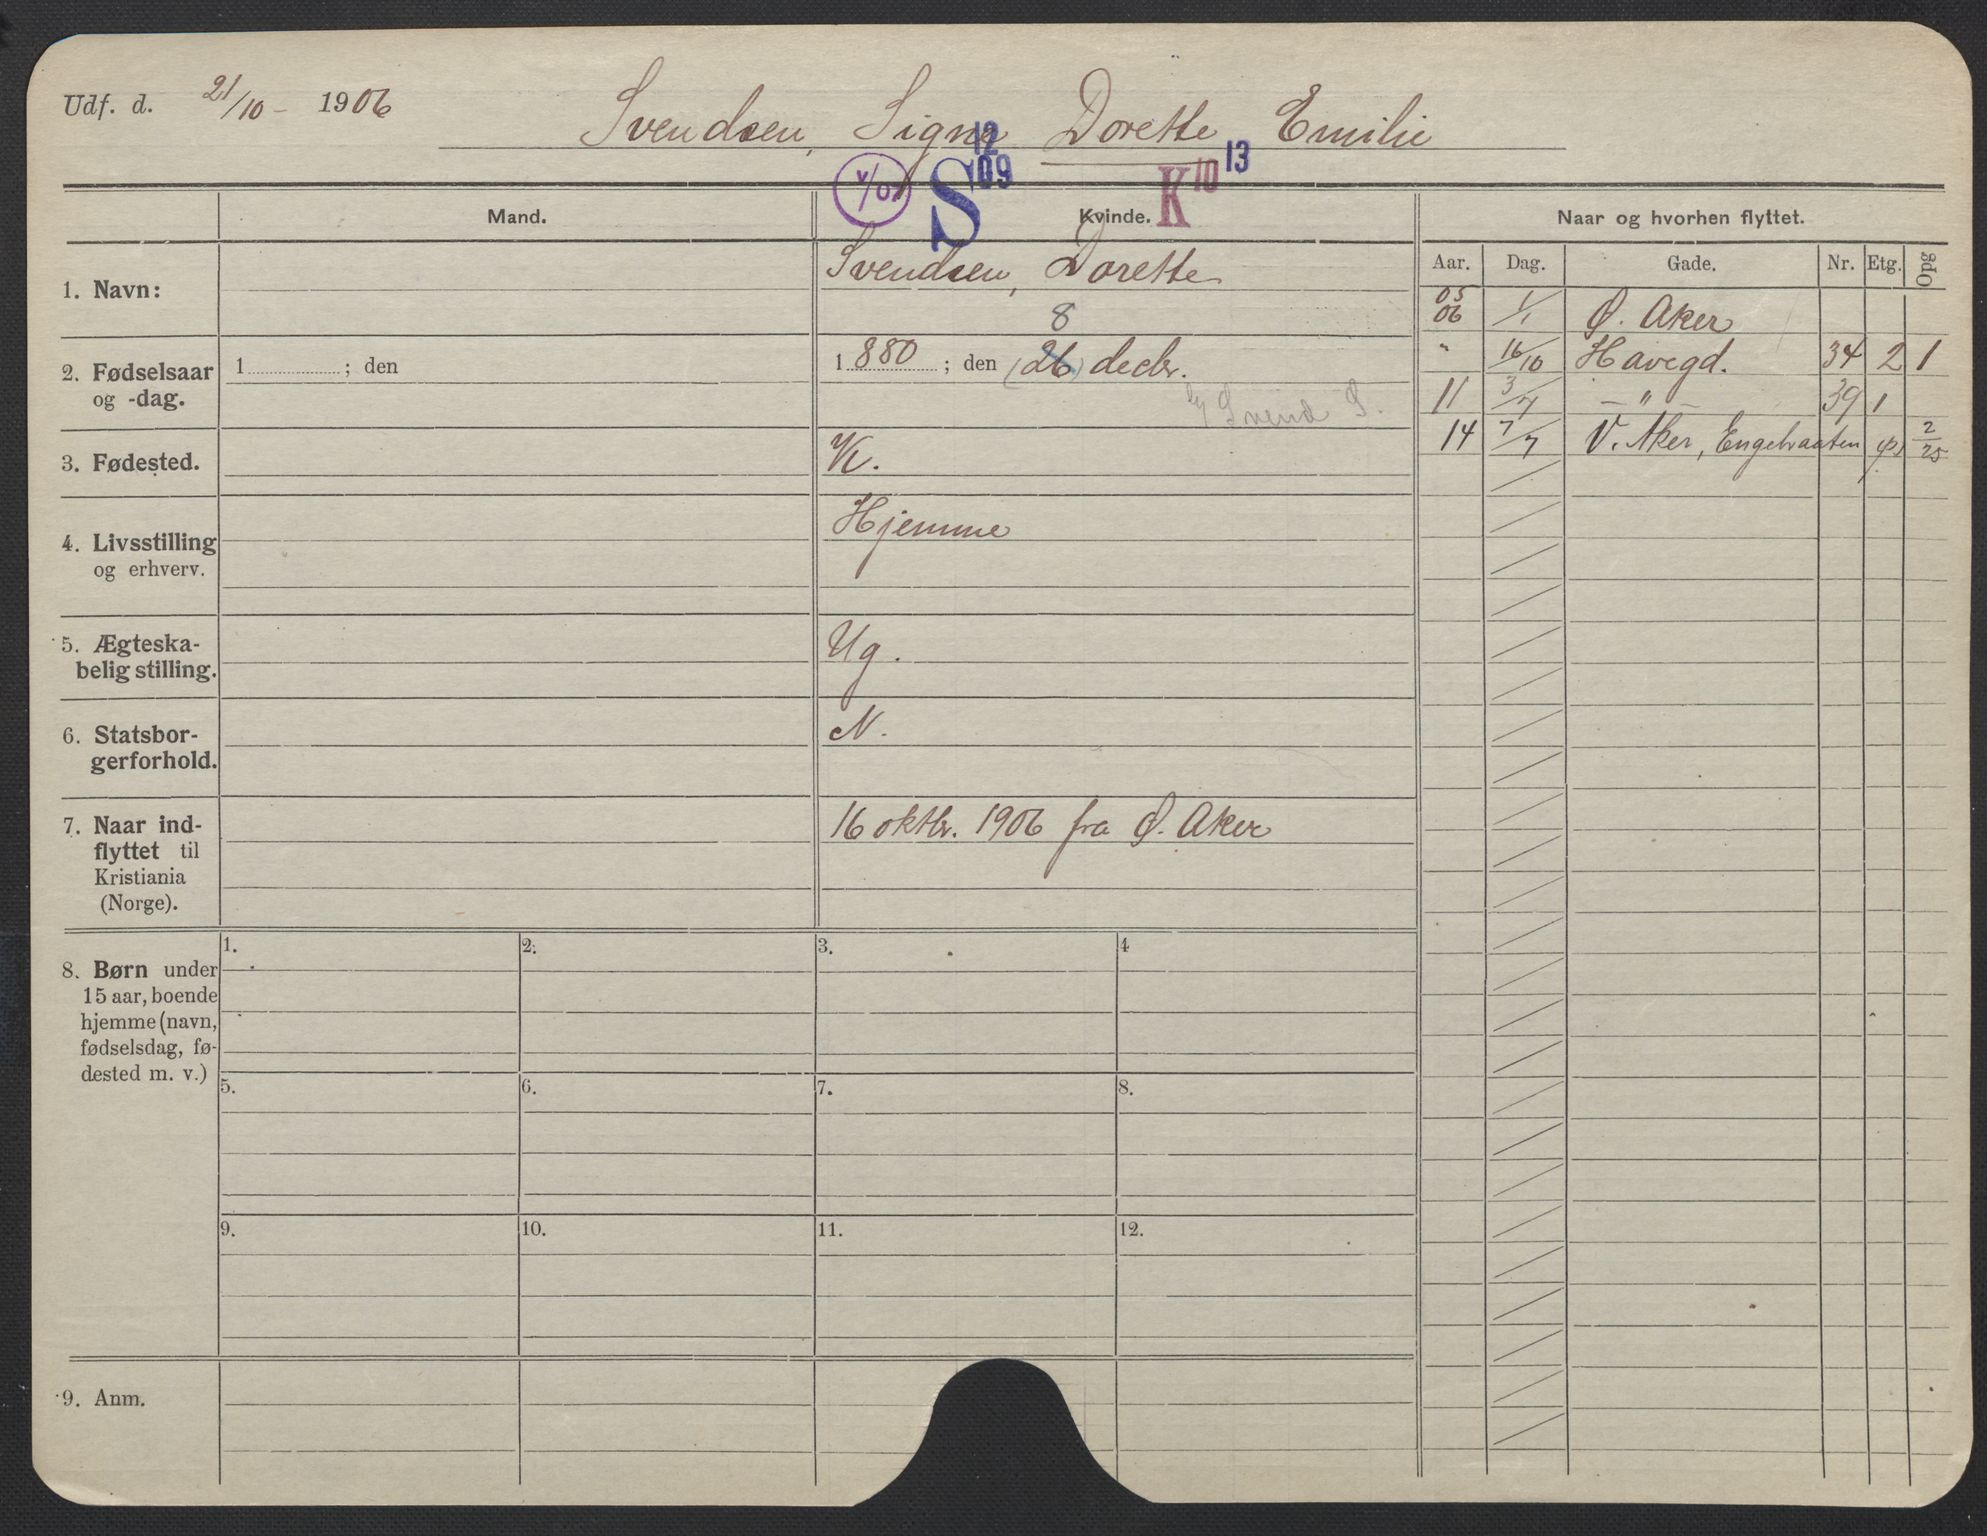 Udf. d. 21/10 - 1906
Svendsen, Signe Dorette Emilie
12
09
S
K 10
13
Mand.
Kvinde.
Naar og hvorhen flyttet.
Aar. Dag. Gade. Nr. Etg. Opg
1. Navn:
Svendsen, Dorette
2. Fødselsaar
og -dag.
1 ; den
8
1 880 ; den (26) decbr.
Svend S.
3. Fødested.
K.
4. Livsstilling
og erhverv.
Hjemme
5. Ægteska-
belig stilling.
Ug.
6. Statsbor-
gerforhold.
N.
7. Naar ind-
flyttet til
Kristiania
(Norge).
16 oktbr. 1906 fra Ø. Aker
8. Børn under
15 aar, boende
hjemme (navn,
fødselsdag, fø-
dested m. v.)
1. 2. 3. 4
5. 6. 7. 8.
9. 10. 11. 12.
9. Anm.
05
06 1/1 Ø. Aker
" 16/10 Havegd. 34 2 1
11 3/7 — " — 39 1
14 7/7 V. Aker, 2/25